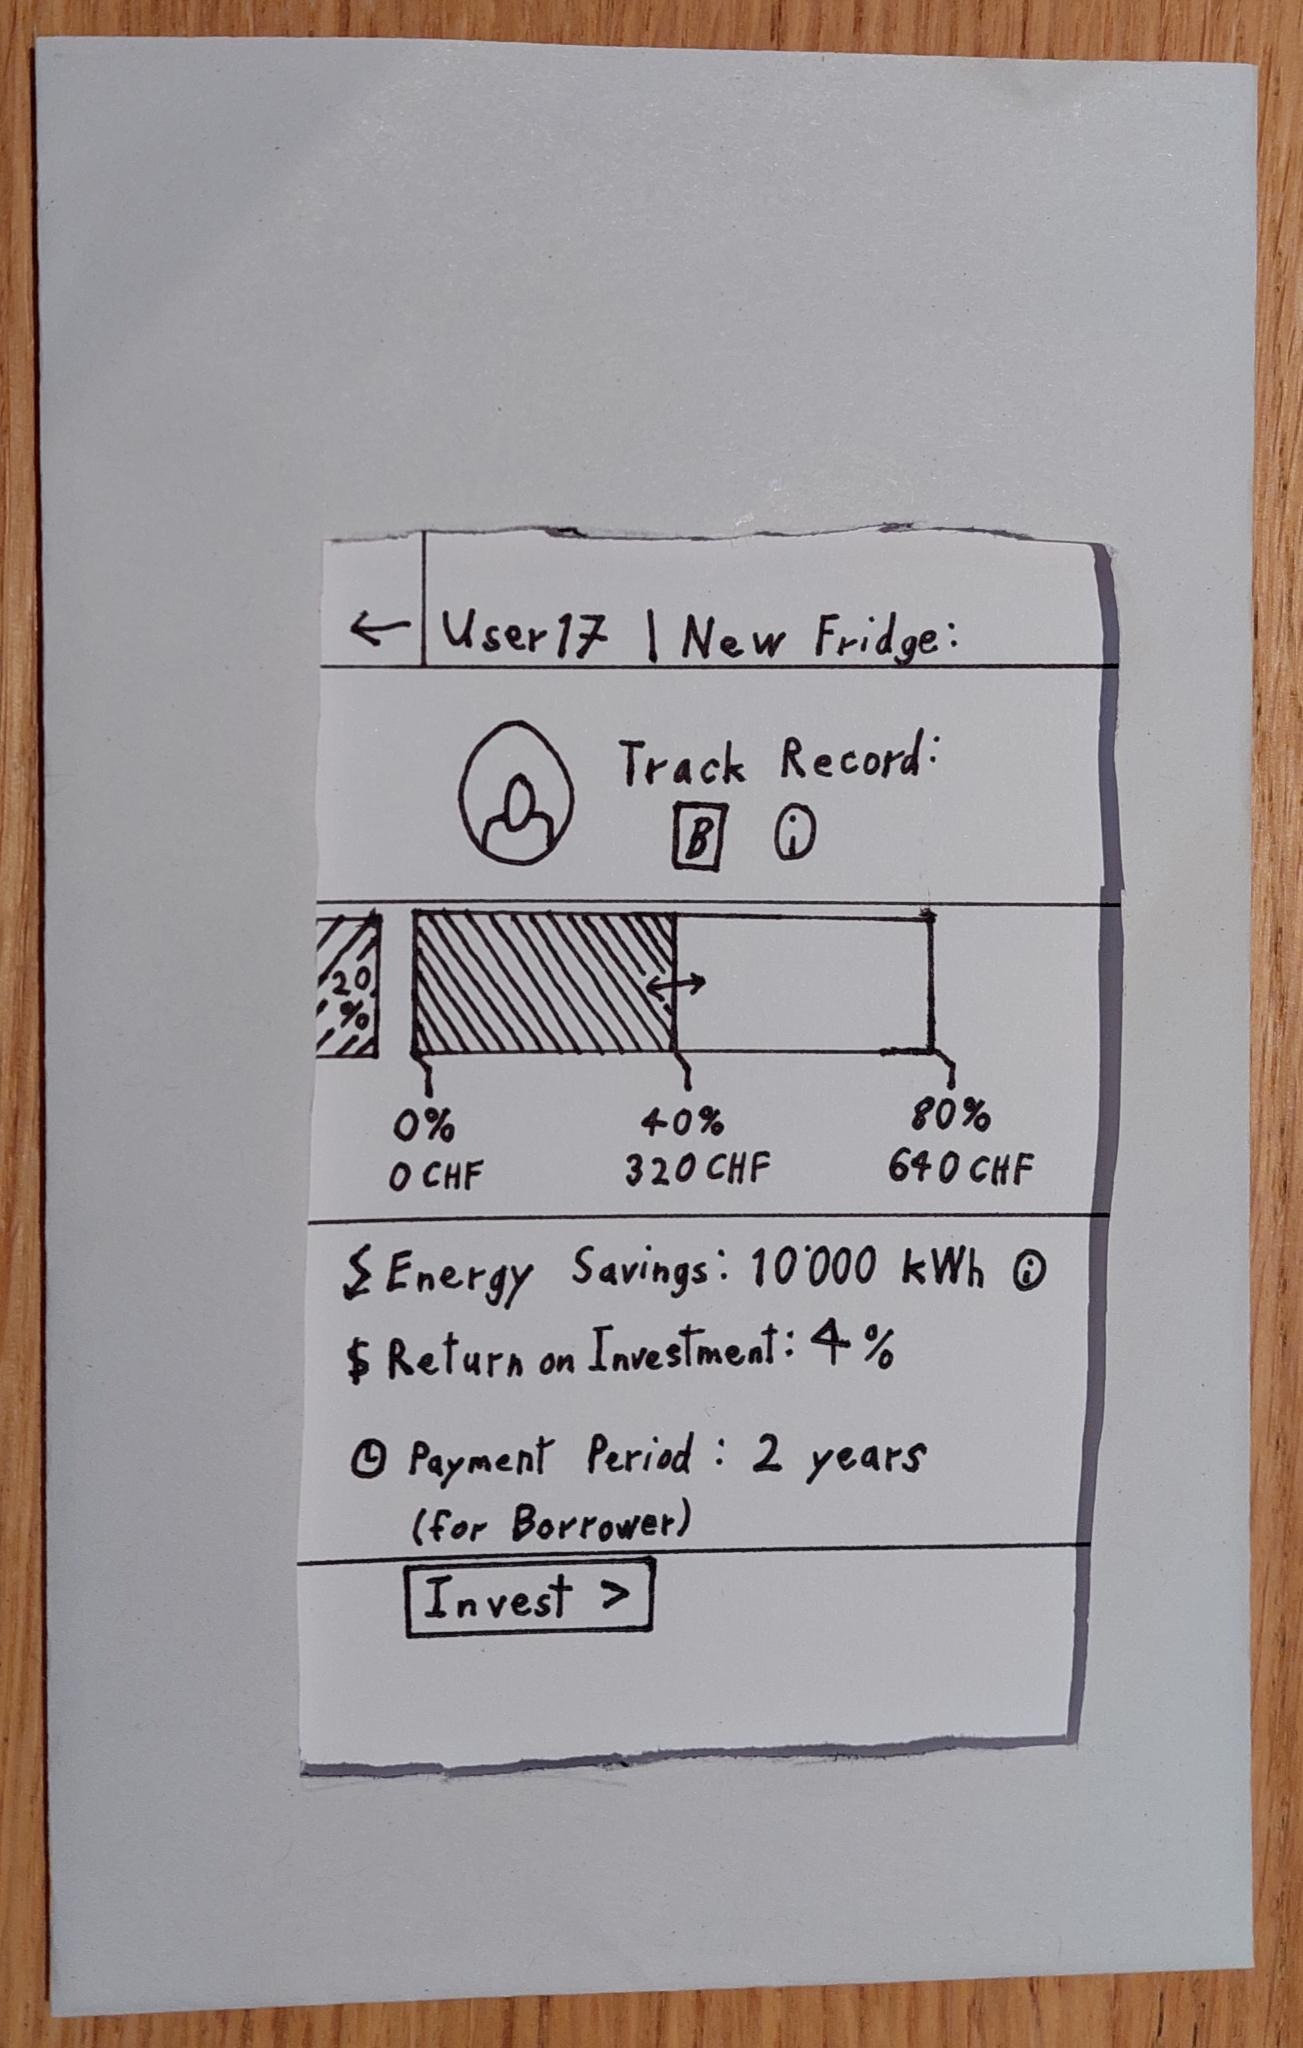 ← User17 | New Fridge:
Track Record:
B i
20
%
0% 40% 80%
0 CHF 320 CHF 640 CHF
Energy Savings: 10'000 kWh i
$ Return on Investment: 4%
Payment Period: 2 years
(for Borrower)
Invest >